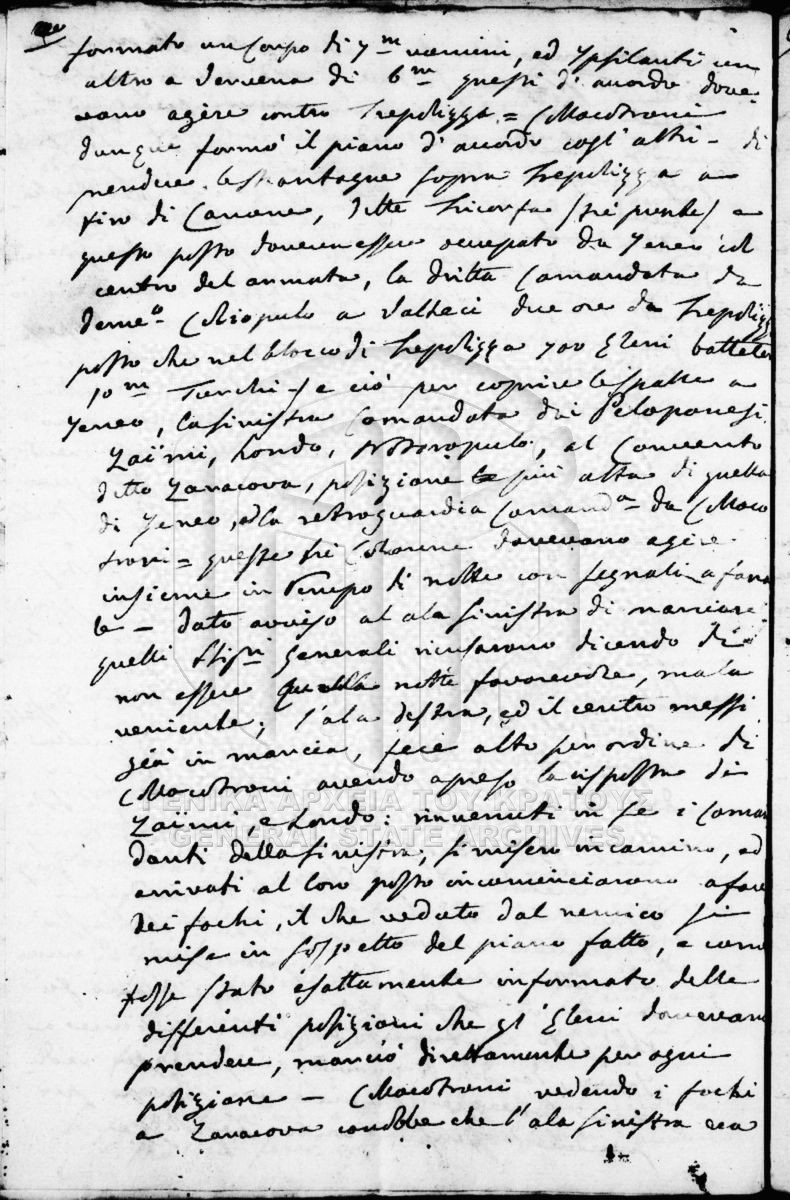 formato un Corpo di 7m uomini, ed Ypsilanti un
altro a Vervena di 6m questi d'accordo dove-
vano agire contro Trepolizza = Colocotroni
dunque formò il piano d'accordo cogl'altri - di
prendere le Montagne sopra Trepolizza a
tiro di Canone, dette Tricorfa (tre punte) a
questo posto doveva essere occupato da Yeneo col
centro del armata, la dritta Comandata da
Deme.o Coliopulo a Valteci due ore da Trepolizza
posto che nel blocco di Trepolizza 700 Eleni battete
10m Turchi - / e ciò per coprire le spalle a
Yeneo, la sinistra Comandata dai Peloponesi
Zaïmi, Londo, , al Convento
detto Zaracova, posizione più alta di quella
di Yeneo, e la retroguardia Comanda.a da Coloco
troni = queste tre Colonne dovevano agire
insieme in tempo di notte con segnali a fana
le - dato avviso al ala sinistra di marciare
quelli Generali ricusarono dicendo di
non essere quella notte favorevole, mala
veniente; l'ala destra, ed il centro messi
già in marcia, fece alto per ordine di
Colocotroni avendo apreso la risposta di
Zaïmi e Londo: rinvenuti in se i Coman
danti della sinistra, si misero in camino, ed
arrivati al loro posto incominciarono a fare
dei fochi, il che veduto dal nemico si
mise in sospetto del piano fatto, e come
fosse stato esattamente informato delle
differenti posizioni che gl'Eleni dovevano
prendere, marciò direttamente per ogni
posizione - Colocotroni vedendo i fochi
a Zaracova conobbe che l'ala sinistra era
ΓΕΝΙΚΑ ΑΡΧΕΙΑ ΤΟΥ ΚΡΑΤΟΥΣ
GENERAL STATE ARCHIVES